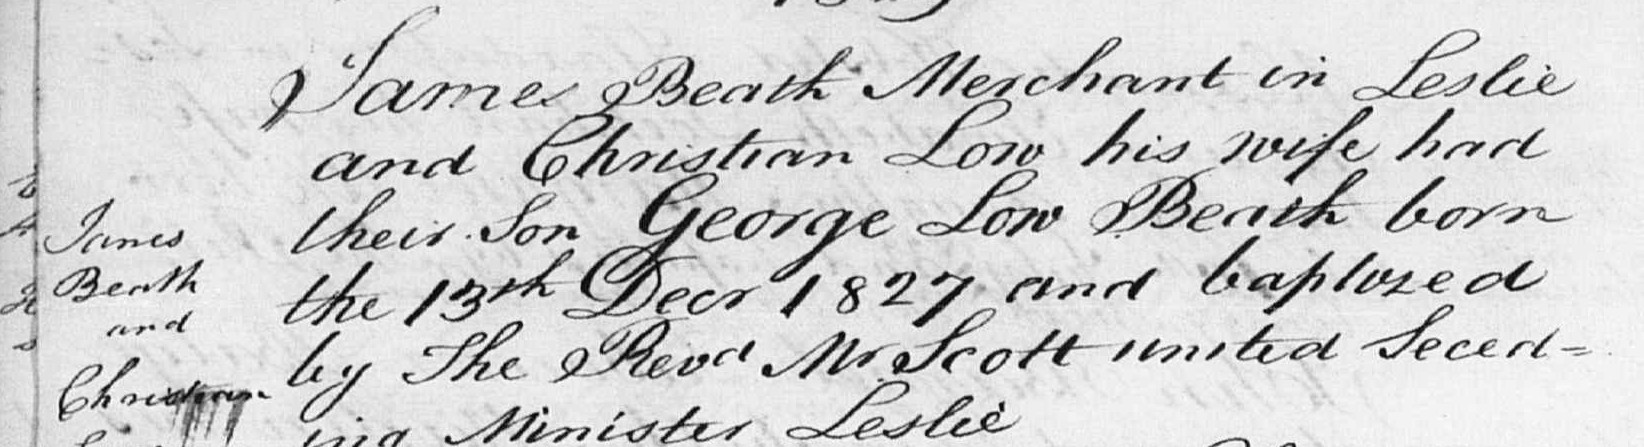 James Beath Merchant in Leslie
and Christian Low his wife had
their Son George Low Beath born
the 13th Decr 1827 and baptized
by The Revd Mr Scott united Seced=
ing Minister Leslie
James
Beath
and
Christian